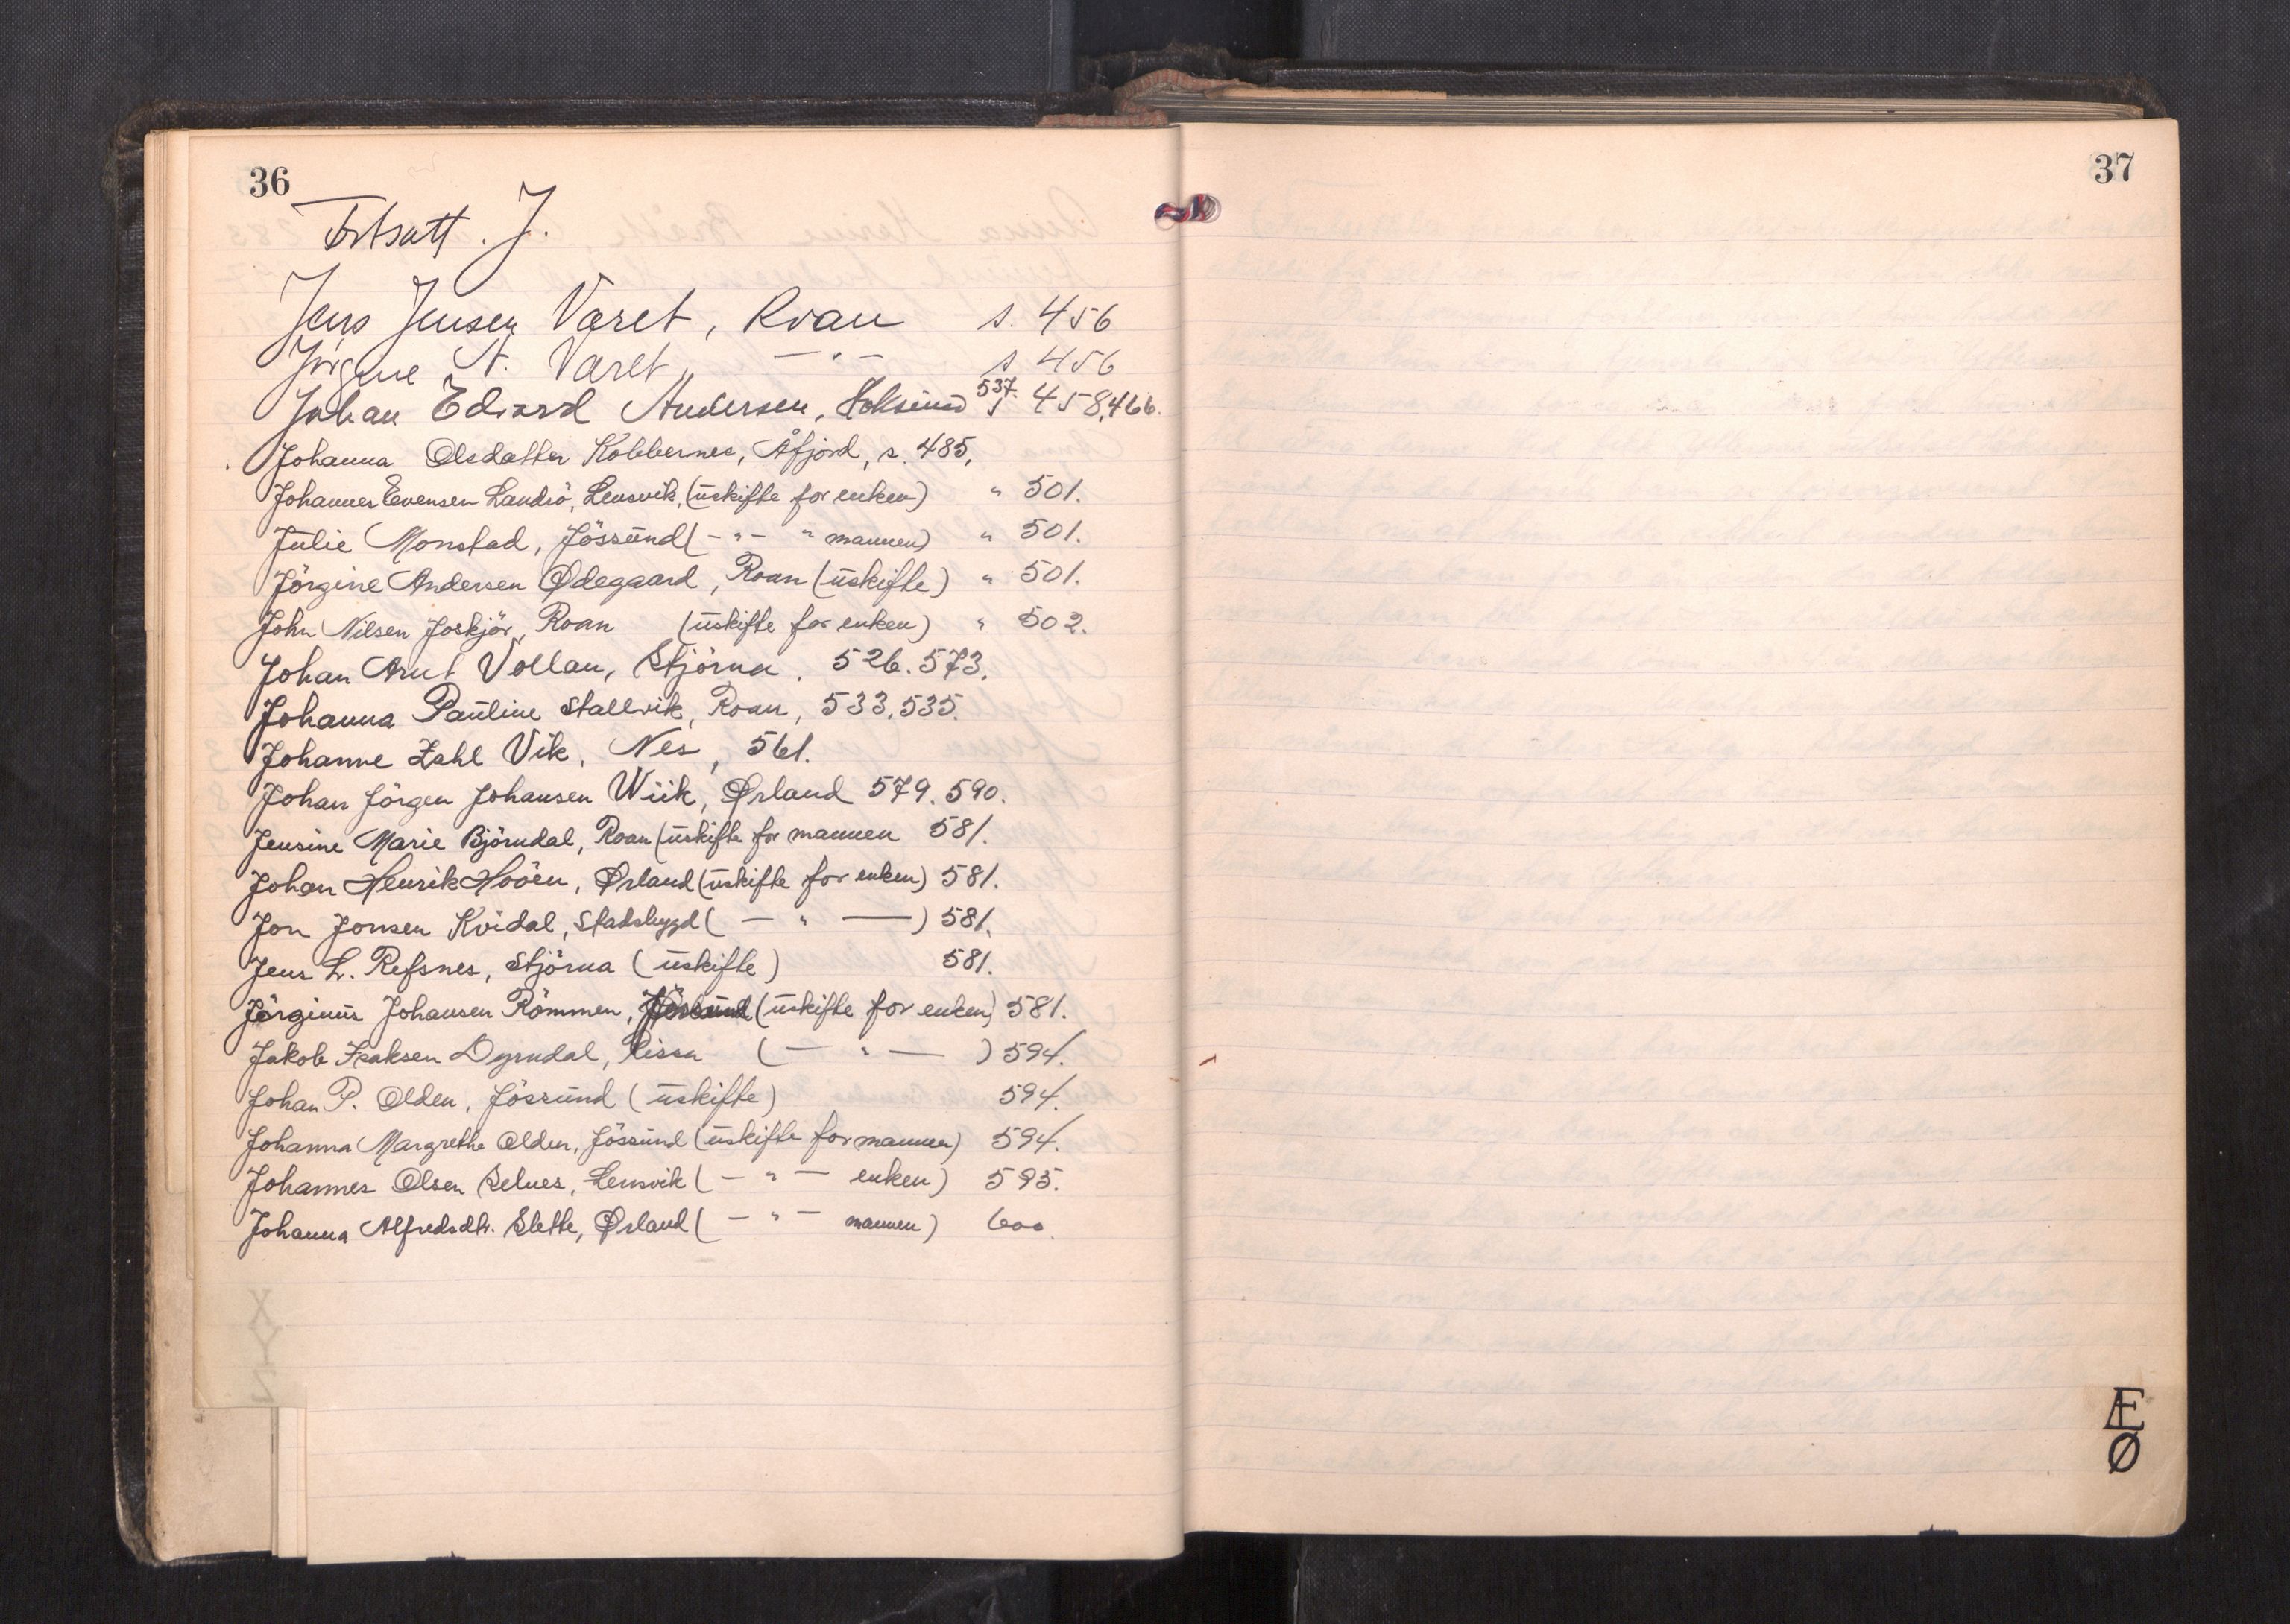 36
Fortsatt. J.
Jens Jensen Været, Roan s. 456
Jørgine N. Været, — " — s 456
Johan Edvard Andersen, Hoksund 537. s 458, 466.
Johanna Olsdatter Kobbernes, Åfjord, s. 485,
Johannes Evensen Landrö, Lensvik, (uskifte for enken) " 501.
Julie Monstad, Jössund (- " - " mannen) " 501.
Jörgine Andersen Ødegaard, Roan (uskifte) " 501.
John Nilsen Joskjör, Roan (uskifte for enken) " 502.
Johan Arnt Vollan, Stjörna, 526. 573.
Johanna Pauline Stallvik, Roan, 533, 535.
Johanne Zahl Vik, Nes, 561.
Johan Jörgen Johansen Wiik, Ørland 579. 590.
Jensine Marie Björndal, Roan (uskifte for mannen 581.
Johan Henrik Hoöen, Ørland (uskifte for enken) 581.
Jon Jonsen Kvidal, Stadsbygd ( — " — ) 581.
Jens L. Refsnes, Stjörna (uskifte) 581.
Jörginus Johansen Römmen, (uskifte for enken) 581.
Jakob Isaksen Dyrndal, Rissa ( — " — ) 594.
Johan P. Olden, Jössund (uskifte) 594.
Johanna Margrethe Olden, Jössund (uskifte for mannen) 594.
Johannes Olsen Selnes, Lensvik ( — " — enken) 595.
Johanna Alfredsdtr. Slette, Ørland ( — " — mannen) 600.
37
Æ
Ø